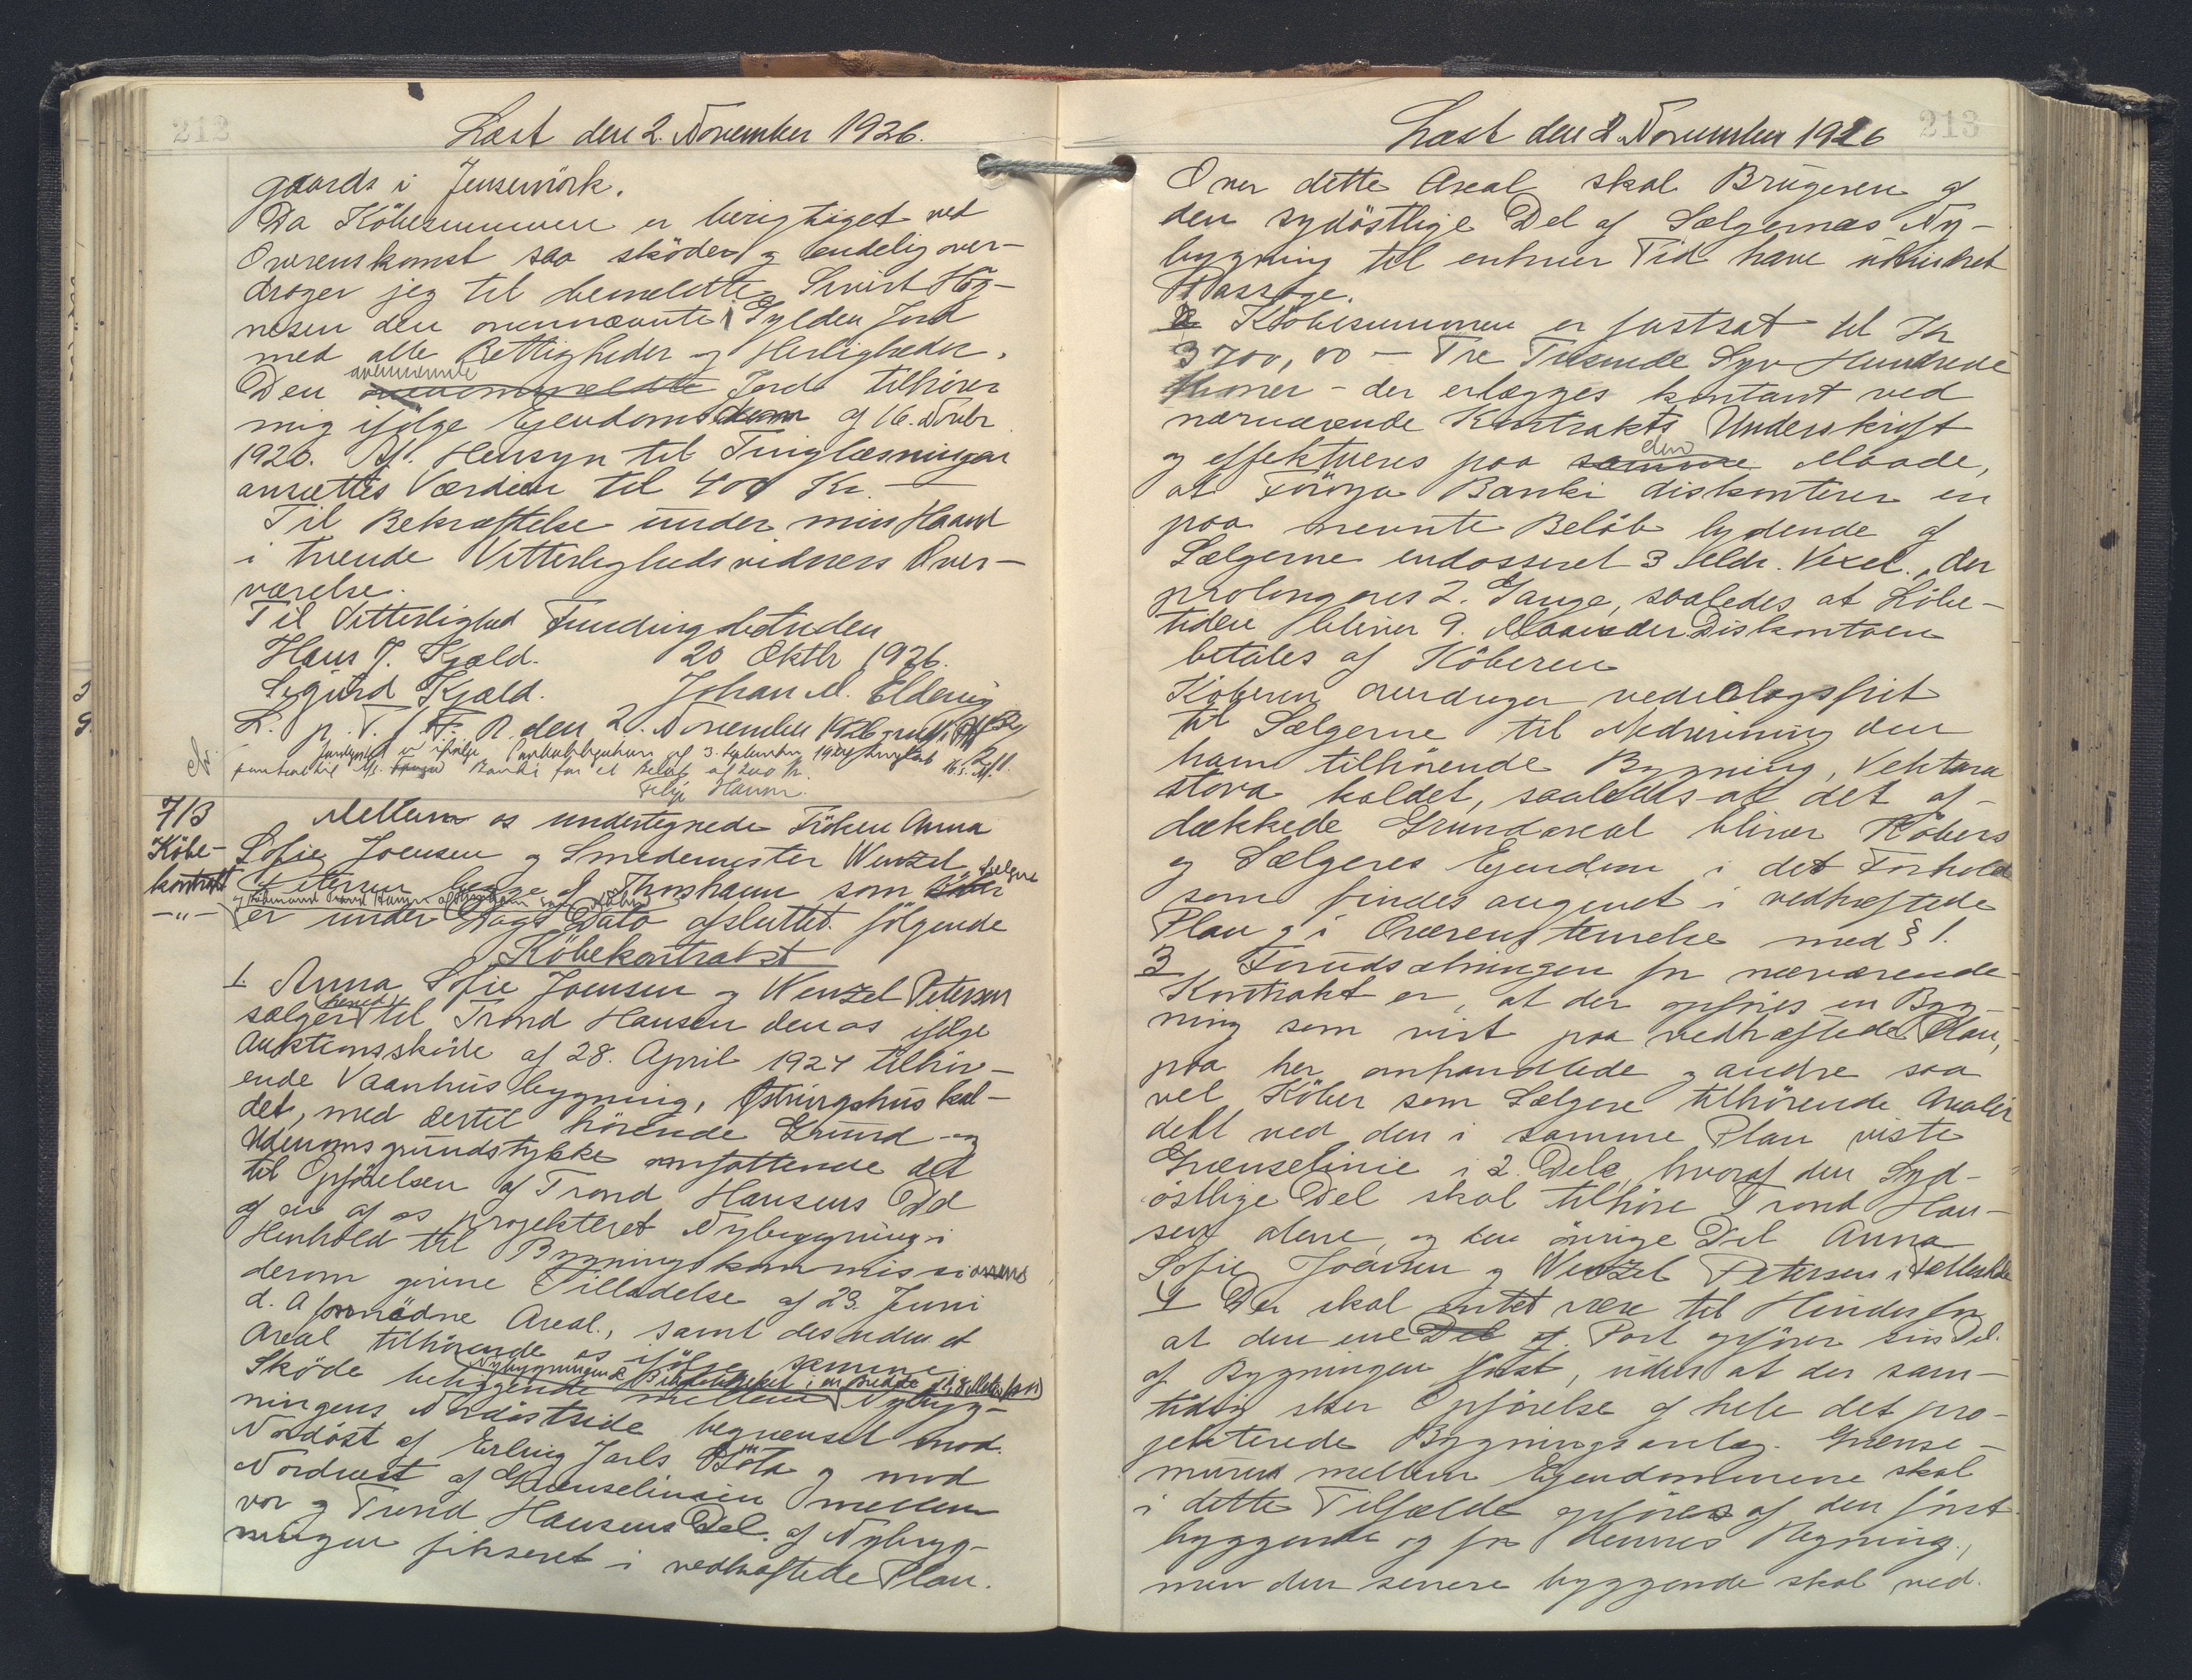 212
Læst den 2. November 1926.
gaards i Jensevörk.
Da Köbesummen er berigtiget ved
Overenskomst saa sköder og endelig over-
drager jeg til bemeldte Sivert Hög-
nesen den ovennævnte Gylden Jord
med alle Rettigheder og Herligheder.
ovennævnte
Den Jord tilhörer
mig ifölge Ejendomsdom af 16. Novbr
1920. Af Hensyn til Tinglæsningen
ansættes Værdien til 400 Kr.
Til Bekræftelse under min Haand
i tvende Vitterlighedsvidners Over-
værelse.
Til Vitterlighed Fundingsbotnden
Hans J. Kjæld. 20 Oktbr 1926.
Sigurd Kjæld. Johan M. Eldevig
L. p. T. f. F. R. den 2. November 1926
Jordstykket er ifölge Panteobligation af 3. September 1924
pantsat til Banki for et Beløb af 200 Kr.
7/3
Köbe-
kontrakt
-"-
Mellem os undertegnede Fröken Anna
Sofie Joensen og Smedemester Wenzel
Petersen begge af Thorshavn som Sælgere
og Købmand Trond Hansen af Thorshavn som Køber
er under Dags Dato afsluttet fölgende
Köbekontrakt
1. Anna Sofie Joensen og Wenzel Petersen
sælger herved til Trond Hansen den os ifølge
Auktionsskøde af 28. April 1924 tilhör-
ende Vaanhusbygning, Østringshus kal-
det, med dertil hörende Grund- og
Udenomsgrundstykke omfattende det
til Opförelsen af Trond Hansens Del
af en af os projekteret Nybygning i
Henhold til Bygningskommissionens
derom givne Tilladelse af 23. Juni
d. A fornødne Areal, samt desuden et
Areal tilhörende os ifölge samme
Sköde beliggende mellem Nybyg-
ningens Nordöstside begrænset mod
Nordöst af Erling Jarls Göta og mod
Nordvest af Grænselinien mellem
vor og Trond Hansens Del af Nybyg-
ningen fikseret i vedhæftede Plan.
213
Læst den 2 November 1926
Over dette Areal skal Brugeren af
den sydöstlige Del af Sælgernes Ny-
bygning til enhver Tid have uhindret
Passage.
2 Köbesummen er fastsat til Kr
3700,00 - Tre Tusende Syv Hundrede
Kroner - der erlægges kontant ved
nærværende Kontrakts Underskrift
og effektueres paa den Maade,
at Föroya Banki diskonterer en
paa nevnte Beløb lydende af
Sælgerne endosseret 3 Mdr. Vexel, der
prolongeres 2. Gange, saaledes at Löbe-
tiden bliver 9. Maaneder Diskontoen
betales af Köberen
Köberen overdrager vederlagsfrit
til Sælgerne til Nedrivning den
ham tilhörende Bygning, Vektara
stova kaldet, saaledes at det af-
dækkede Grundareal bliver Köbers
og Sælgeres Ejendom i det Forhold
som findes angivet i vedhæftede
Plan og i Overensstemmelse med § 1.
3 Forudsætningen for nærværende
Kontrakt er, at der opføres en Byg-
ning som vist paa vedhæftede Plan,
paa her omhandlede og andre saa
vel Köber som Sælgere tilhörende Arealer
delt ved den i samme Plan viste
Grænselinie i 2 Dele, hvoraf den Syd-
östlige Del skal tilhöre Trond Han-
sen alene, og den övrige Del Anna
Sofie Joensen og Wenzel Petersen i Fællesskab
4 Der skal intet være til Hinder for
at den ene Part opförer sin Del
af Bygningen først, uden at der sam-
tidig sker Opförelse af hele det pro-
jekterede Bygningsanlæg. Grænse-
muren mellem Ejendommene skal
i dette Tilfælde opføres af den först
byggende og for dennes Regning,
men den senere byggende skal ved